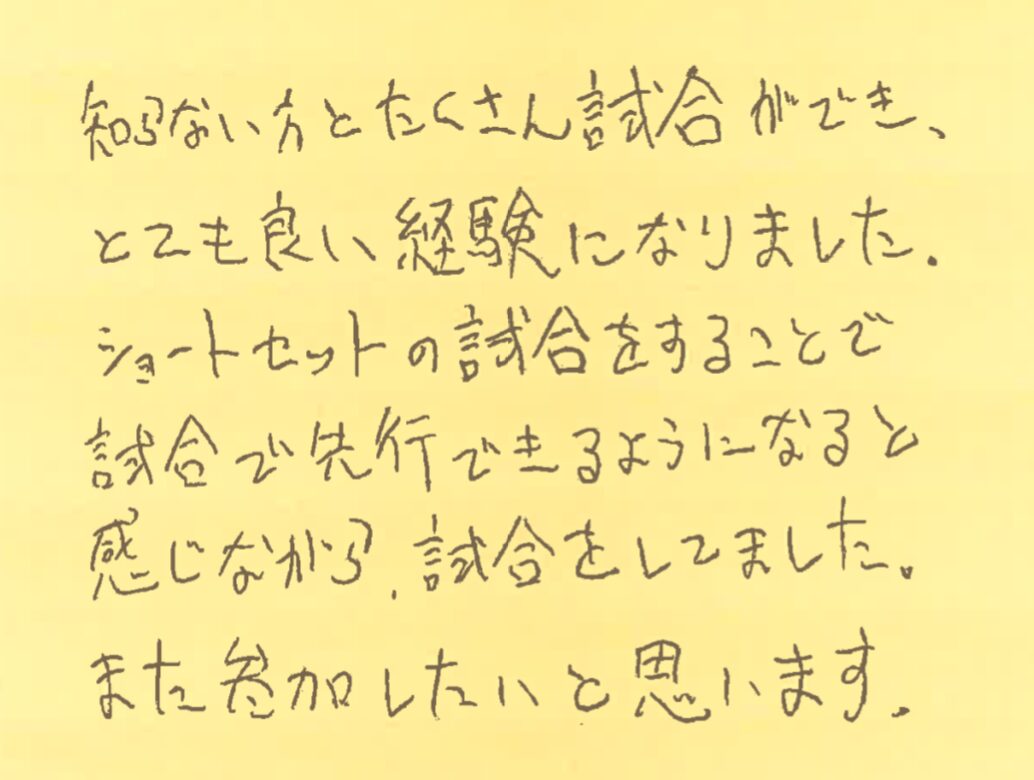 知らない方とたくさん試合ができ、
とても良い経験になりました.
ショートセットの試合をすることで
試合で先行できるようになると
感じながら、試合をしてました。
また参加したいと思います.